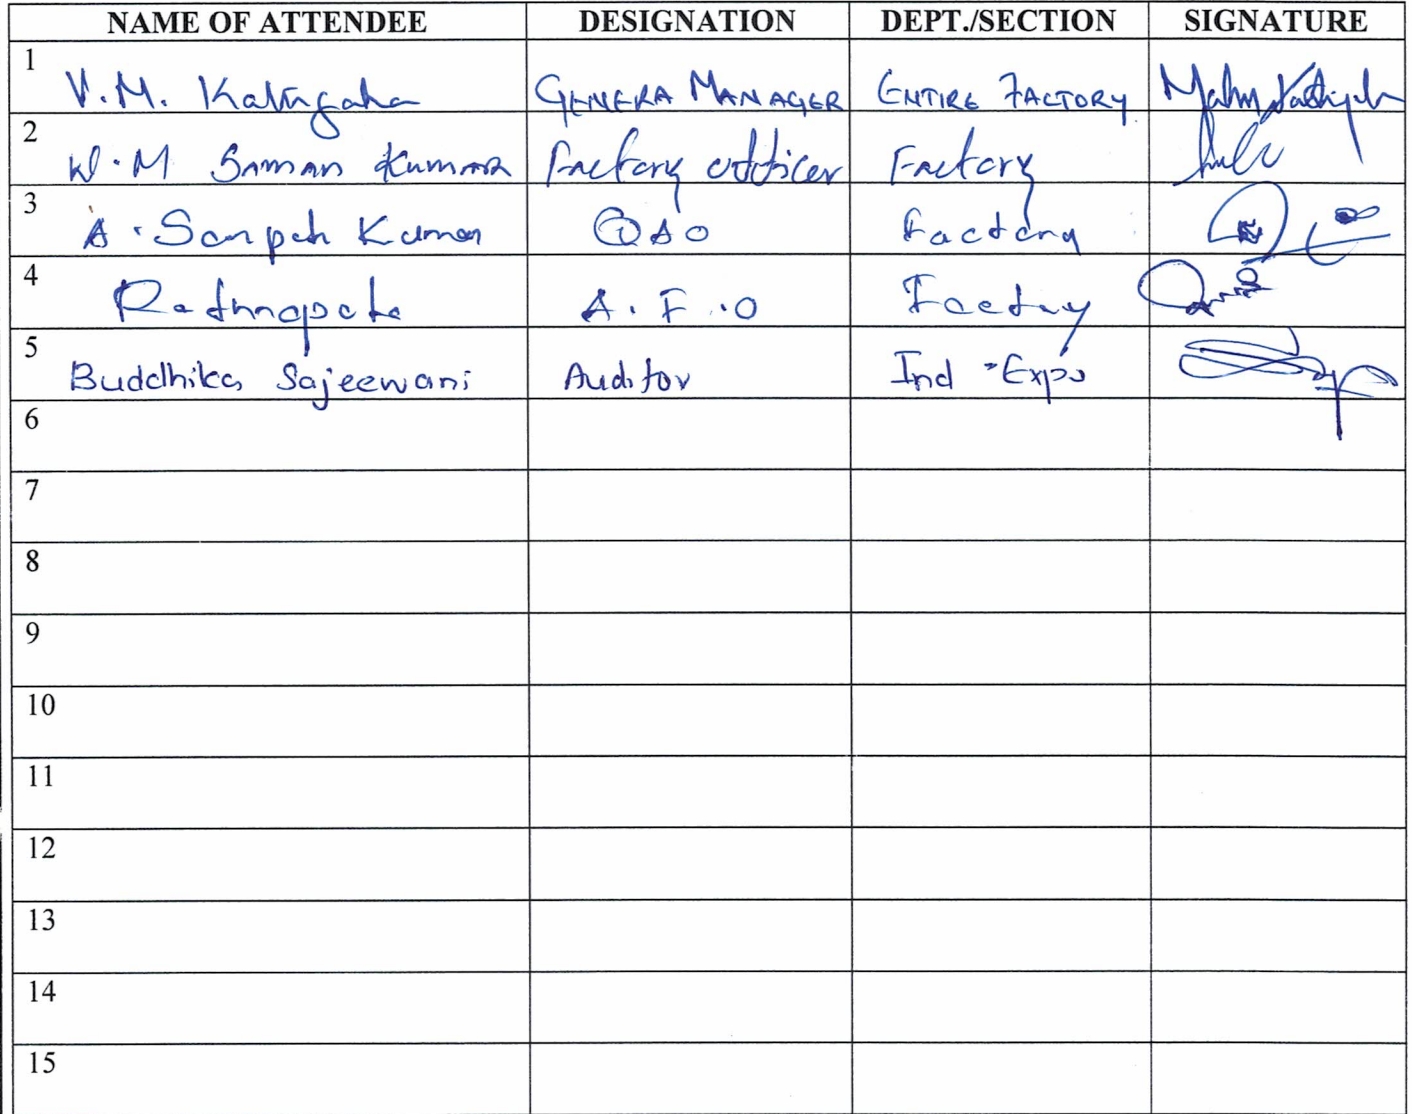 NAME OF ATTENDEE DESIGNATION DEPT./SECTION SIGNATURE
1 V.M. Katugaha GENERA MANAGER ENTIRE FACTORY
2 W.M Saman Kumara Factory officer Factory
3 A. Sanpath Kumar QAO Factory
4 Rathnapala A.F.O Factory
5 Buddhika Sajeewani Auditor Ind -Expo
6
7
8
9
10
11
12
13
14
15